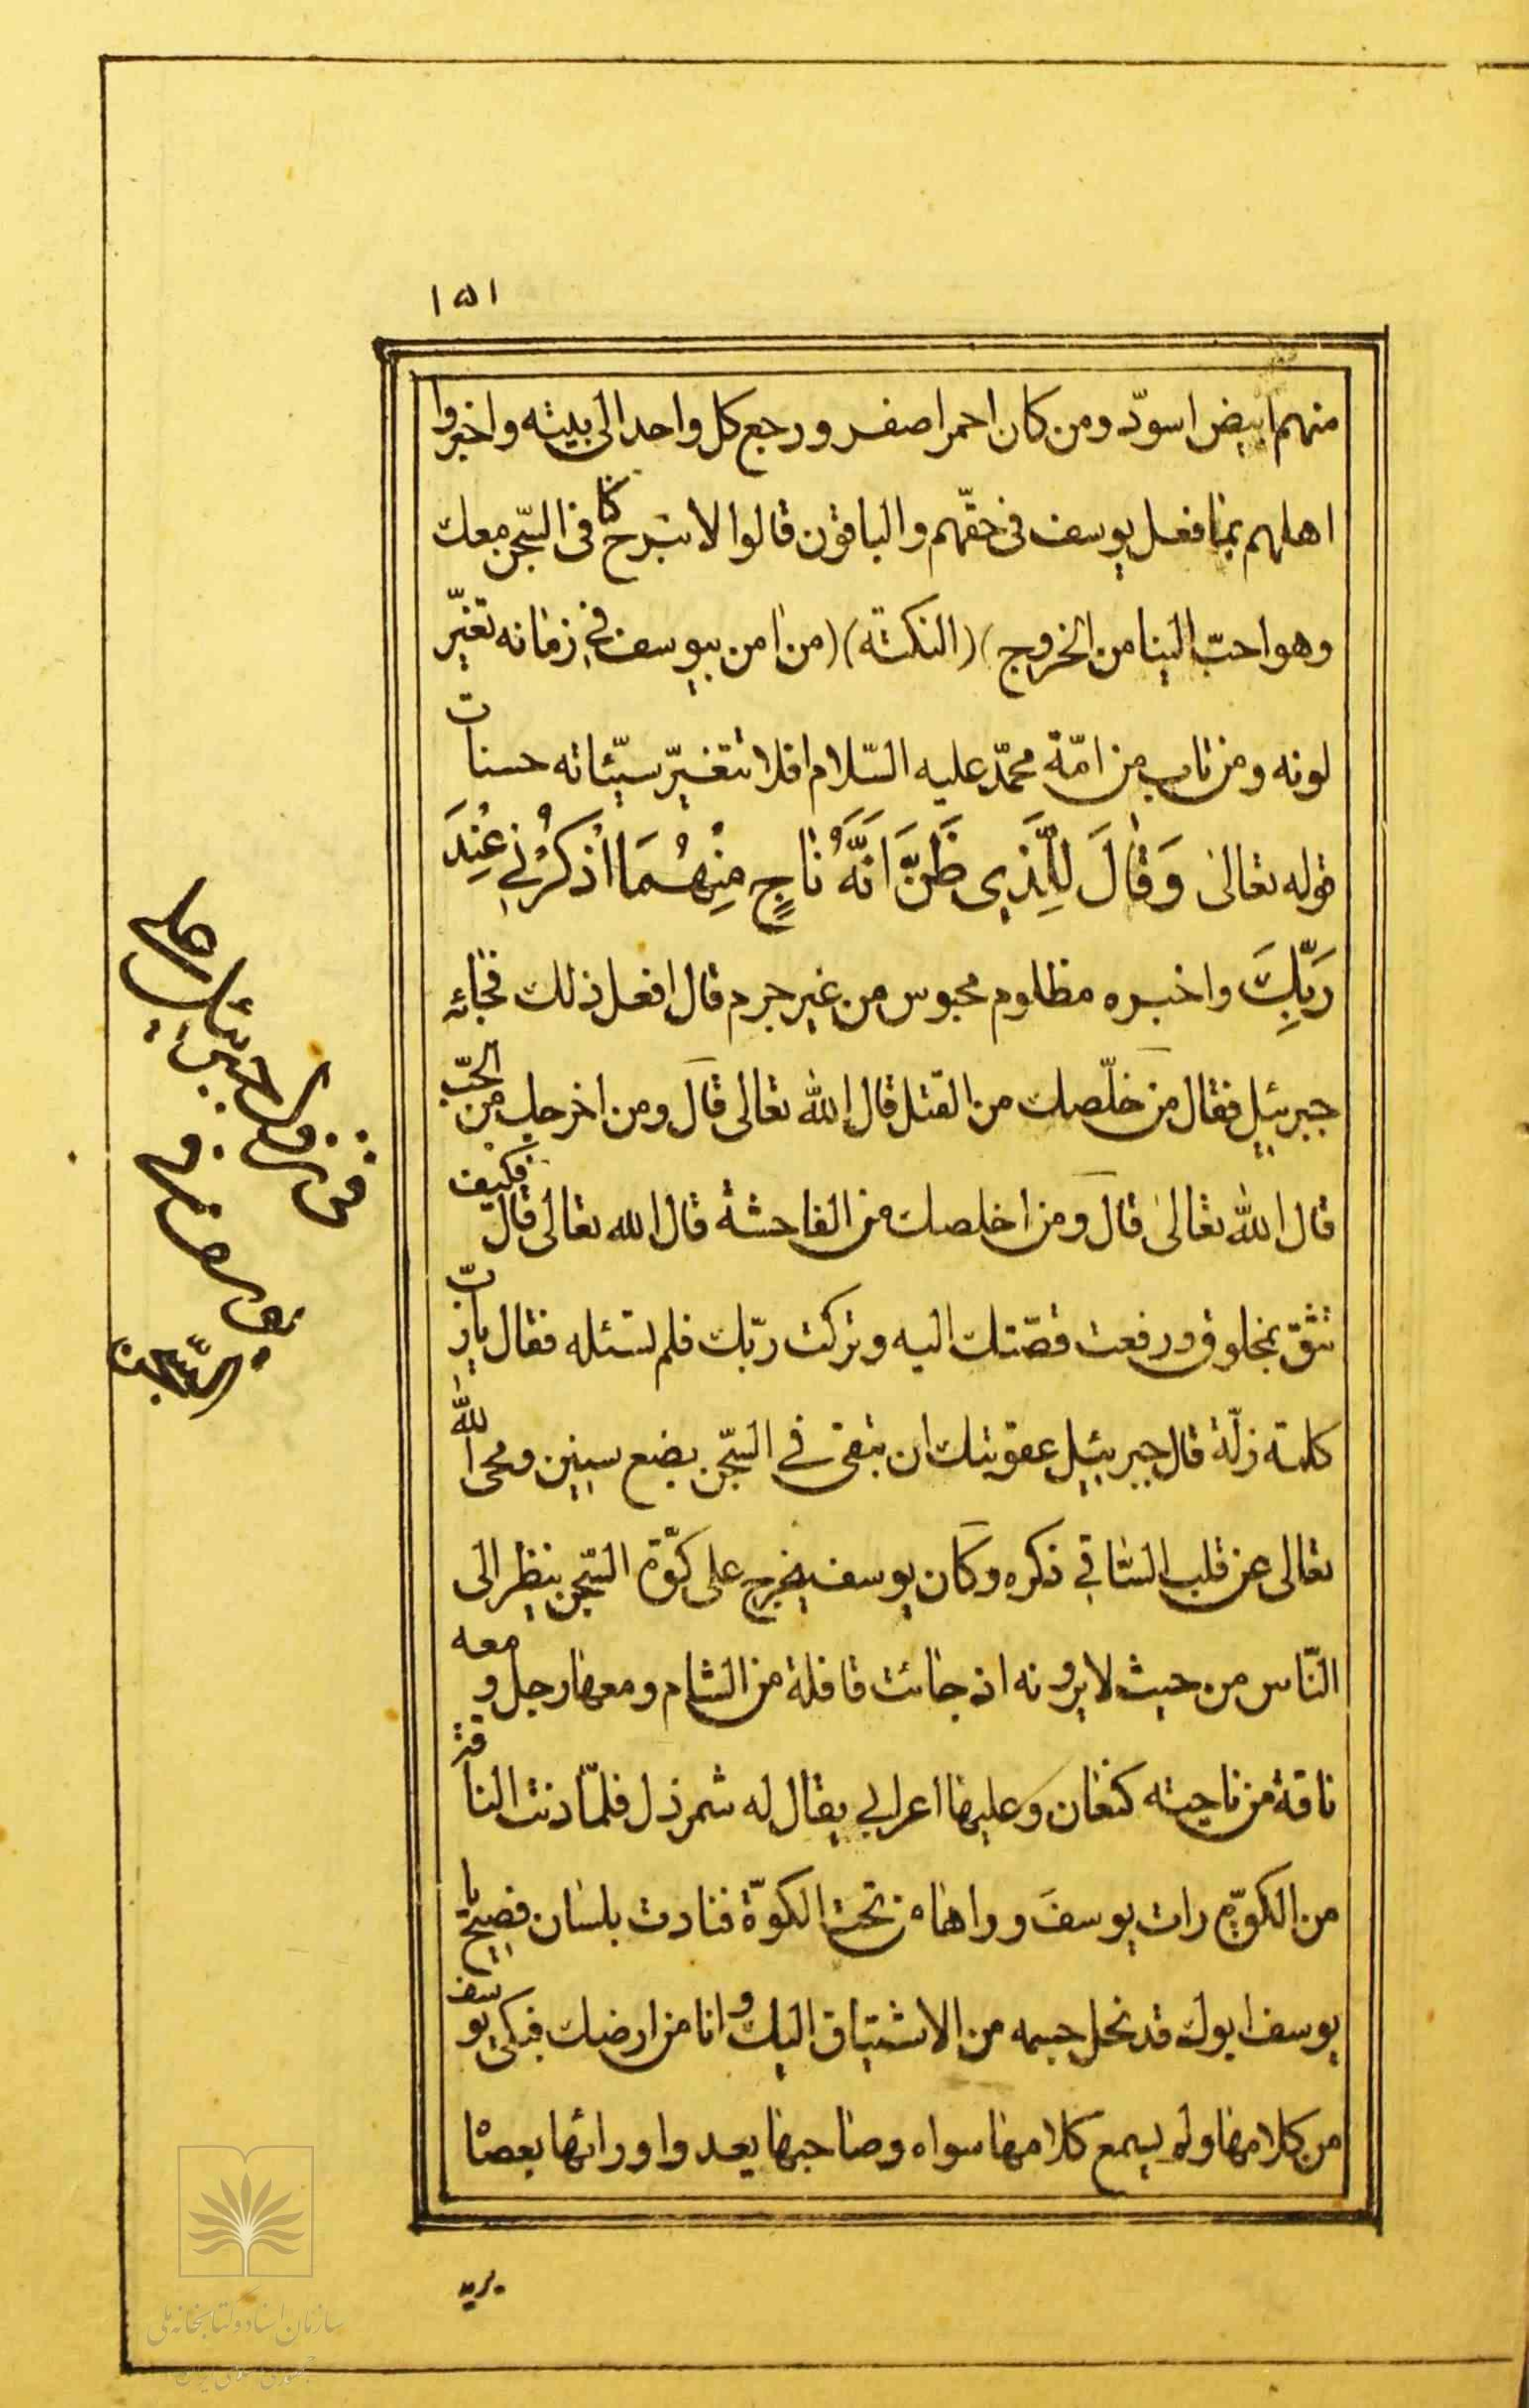 ١٥١
منهم ابيض اسودّ ومن كان احمر اصفر ورجع كل واحد الى بيته واخبروا
اهلهم بما فعل يوسف فى حقّهم والباقون قالوا لا نبرح كنا فى السّجن معك
وهو احبّ الينا من الخروج) (النكتة) (من امن بيوسف فى زمانه تغيّر
لونه ومن تاب من امّة محمّد عليه السّلام افلا تتغيّر سيّئاته حسنات
قوله تعالى وَقَالَ لِلَّذِى ظَنَّ اَنَّهُ نَاجٍ مِنْهُمَا اذْكُرْنِى عِنْدَ
رَبِّكَ واخبره مظلوم محبوس من غير جرم قال افعل ذلك فجائه
جبرئيل فقال من خلّصك من القتل قال الله تعالى قال ومن اخرجك من الجبّ
قال الله تعالى قال ومن اخلصك من الفاحشة قال الله تعالى قال فكيف
تثق بمخلوق ورفعت قصّتك اليه وتركت ربّك فلم تسئله فقال يا ربّ
كلمة زلّة قال جبرئيل عقوبتك ان تبقى فى السّجن بضع سنين ومحى الله
تعالى عن قلب السّاقى ذكره وكان يوسف يخرج على كوّة السّجن ينظر الى
النّاس من حيث لا يرونه اذ جائت قافلة من الشام ومعها رجل ومعه
ناقة من ناحيته كنعان وعليها اعرابى يقال له شمرذل فلمّا دنت الناقة
من الكوّة رات يوسف وراها من تحت الكوّة فنادت بلسان فصيح يا
يوسف ابوك قد نحل جسمه من الاشتياق اليك وانا من ارضك فبكى يوسف
من كلامها ولم يسمع كلامها سواه وصاحبها يعدوا ورائها بعصا
يريد
فى نزول جبرئيل على
يوسف فى
السّجن
سازمان اسناد و کتابخانه ملی
جمهوری اسلامی ایران